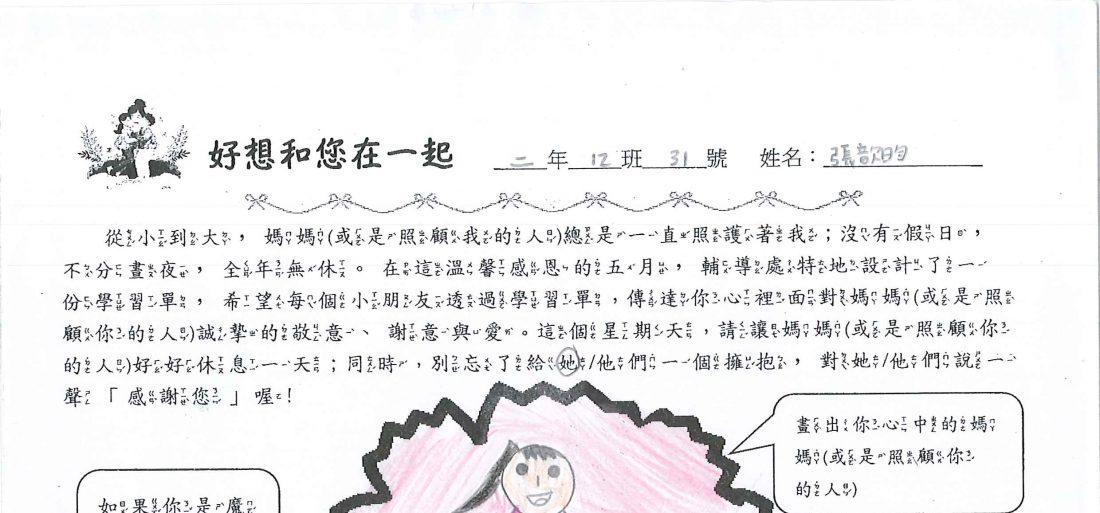 好想和您在一起 二年12班31號 姓名：張歆昀
從小到大，媽媽(或是照顧我的人)總是一直照護著我；沒有假日，
不分晝夜，全年無休。在這溫馨感恩的五月，輔導處特地設計了一
份學習單，希望每個小朋友透過學習單，傳達你心裡面對媽媽(或是照
顧你的人)誠摯的敬意、謝意與愛。這個星期天，請讓媽媽(或是照顧你
的人)好好休息一天；同時，別忘了給她/他們一個擁抱，對她/他們說一
聲「感謝您」喔！
畫出你心中的媽
媽(或是照顧你
的人)
如果你是魔